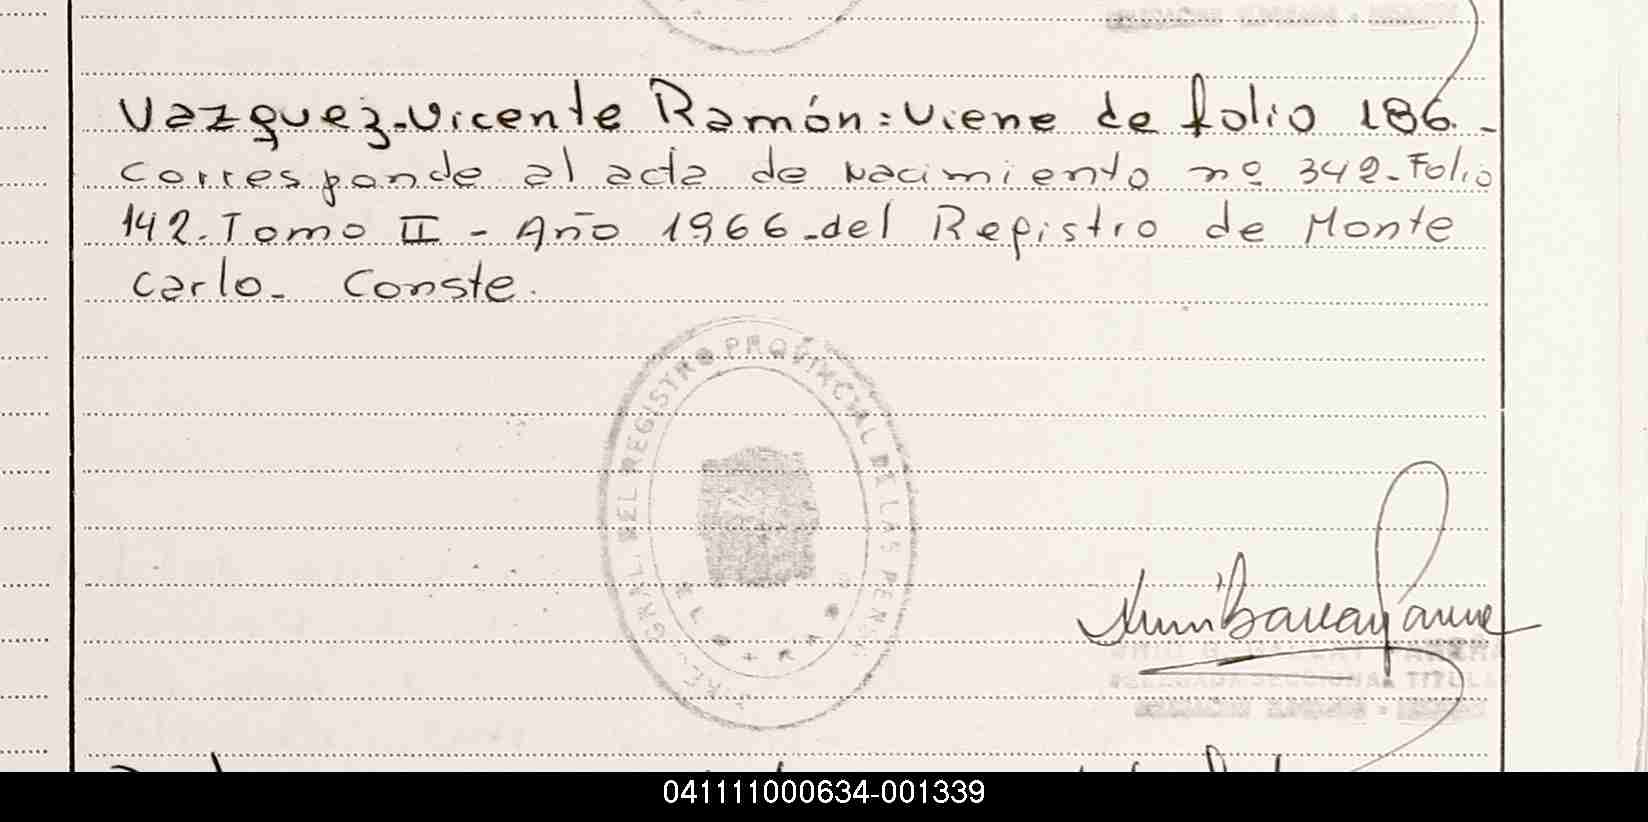 Vazquez-Vicente Ramón: Viene de folio 186.-
Corresponde al acta de Nacimiento nº 342-Folio
142-Tomo II - Año 1966-del Registro de Monte
Carlo- Conste.
GRAL. DEL REGISTRO PROVINCIAL DE LAS PERS
DELEGADA SECCIONAL TITUL
041111000634-001339